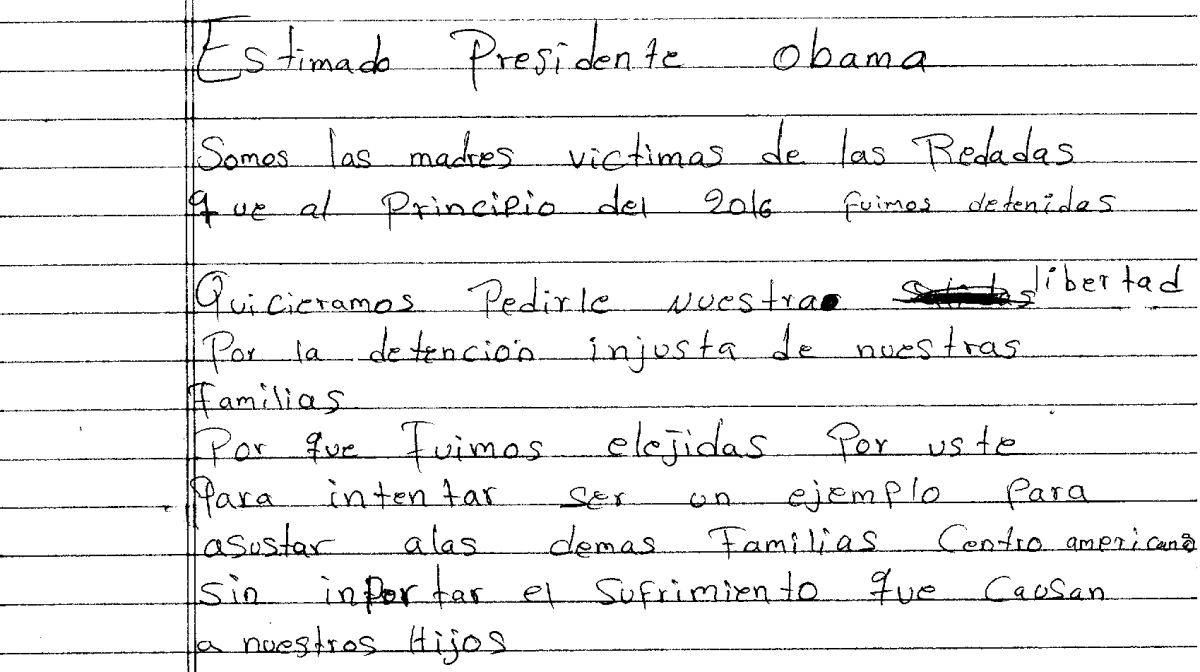 Estimado Presidente Obama
Somos las madres victimas de las Redadas
que al Principio del 2016 fuimos detenidas
Quicieramos Pedirle Nuestra libertad
Por la detención injusta de nuestras
Familias
Por que Fuimos elejidas Por uste
Para intentar ser un ejemplo Para
asustar alas demas Familias Centro americana
Sin inportar el Sufrimiento que Causan
a nuestros Hijos